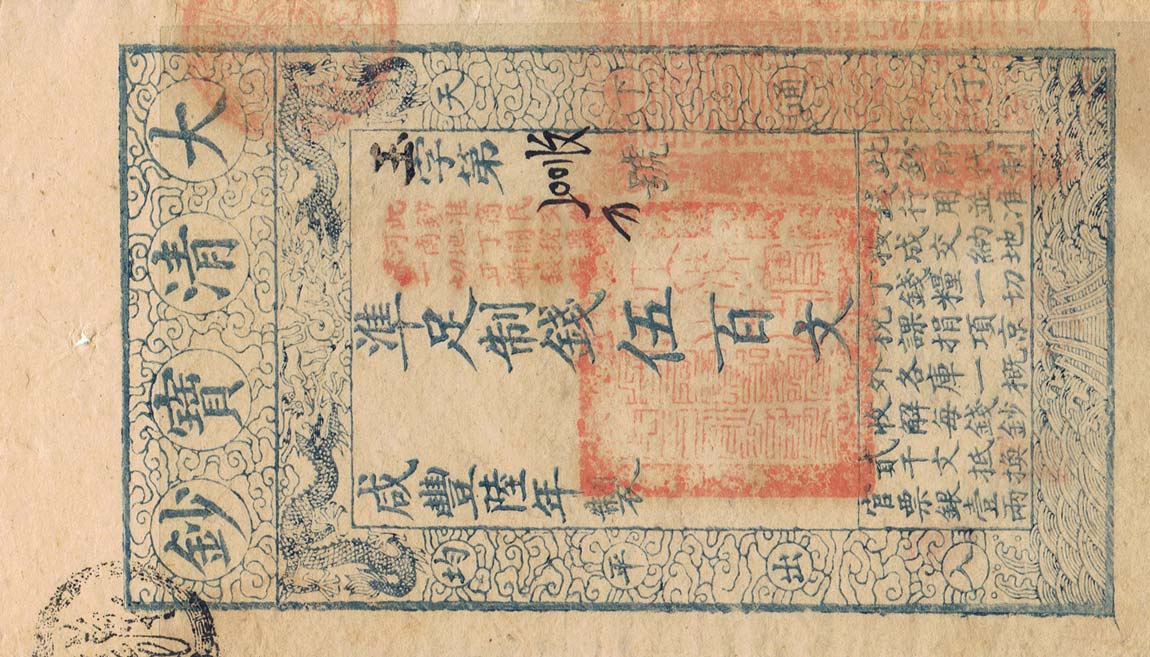 大清寶鈔
天下通行
字第
號
準足制錢伍百文
咸豐陸年製
均平出入
此鈔即代制
錢行用並准
按成交納地
丁錢糧一切
稅課捐項京
外各庫一概
收解每錢鈔
貳千文抵換
官票銀壹兩